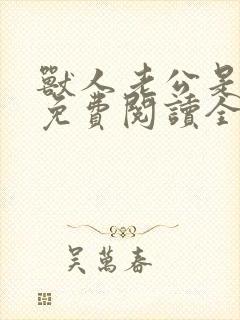 獸人老公是
免費閱讀全
吳萬春